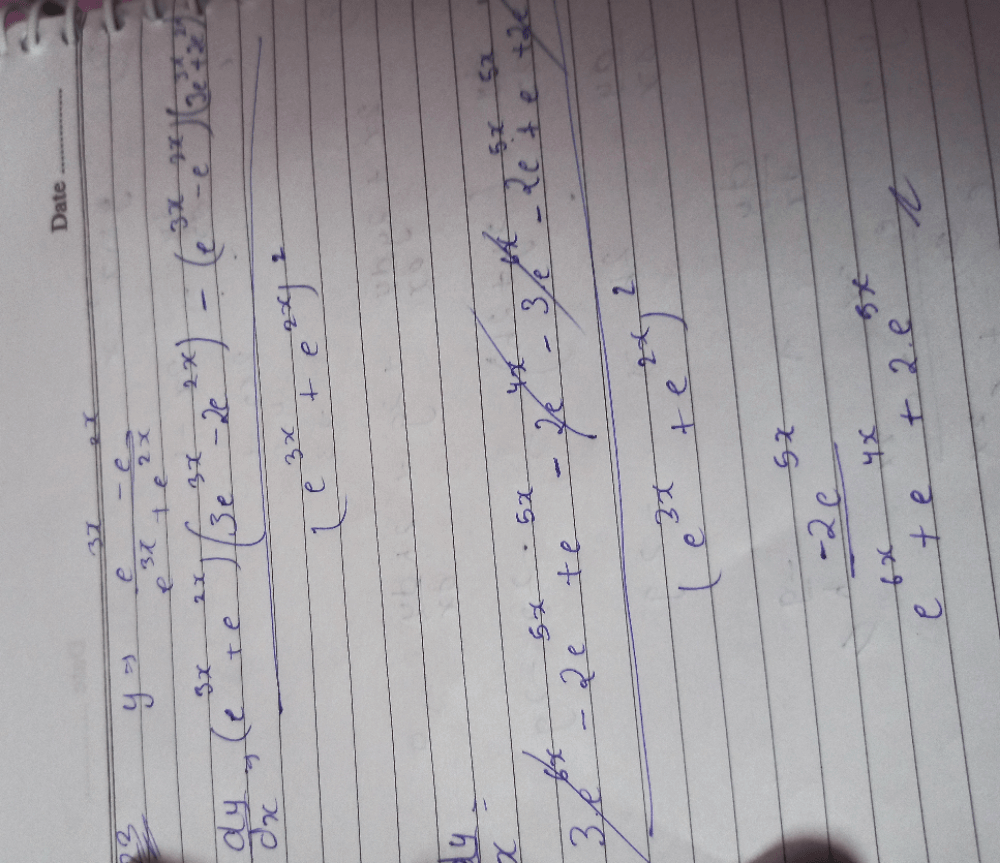 Date ............
23 y ⇒ e^3x - e^2x / e^3x + e^2x
dy/dx ⇒ (e^3x + e^2x)(3e^3x - 2e^2x) - (e^3x - e^2x)(3e^3x + 2x
(e^3x + e^2x)^2
dy =
x
3e^6x - 2e^5x + e^5x - 2e^4x - 3e^6x - 2e^5x + e^5x + 2e
(e^3x + e^2x)^2
-2e^5x
e^6x + e^4x + 2.e^5x